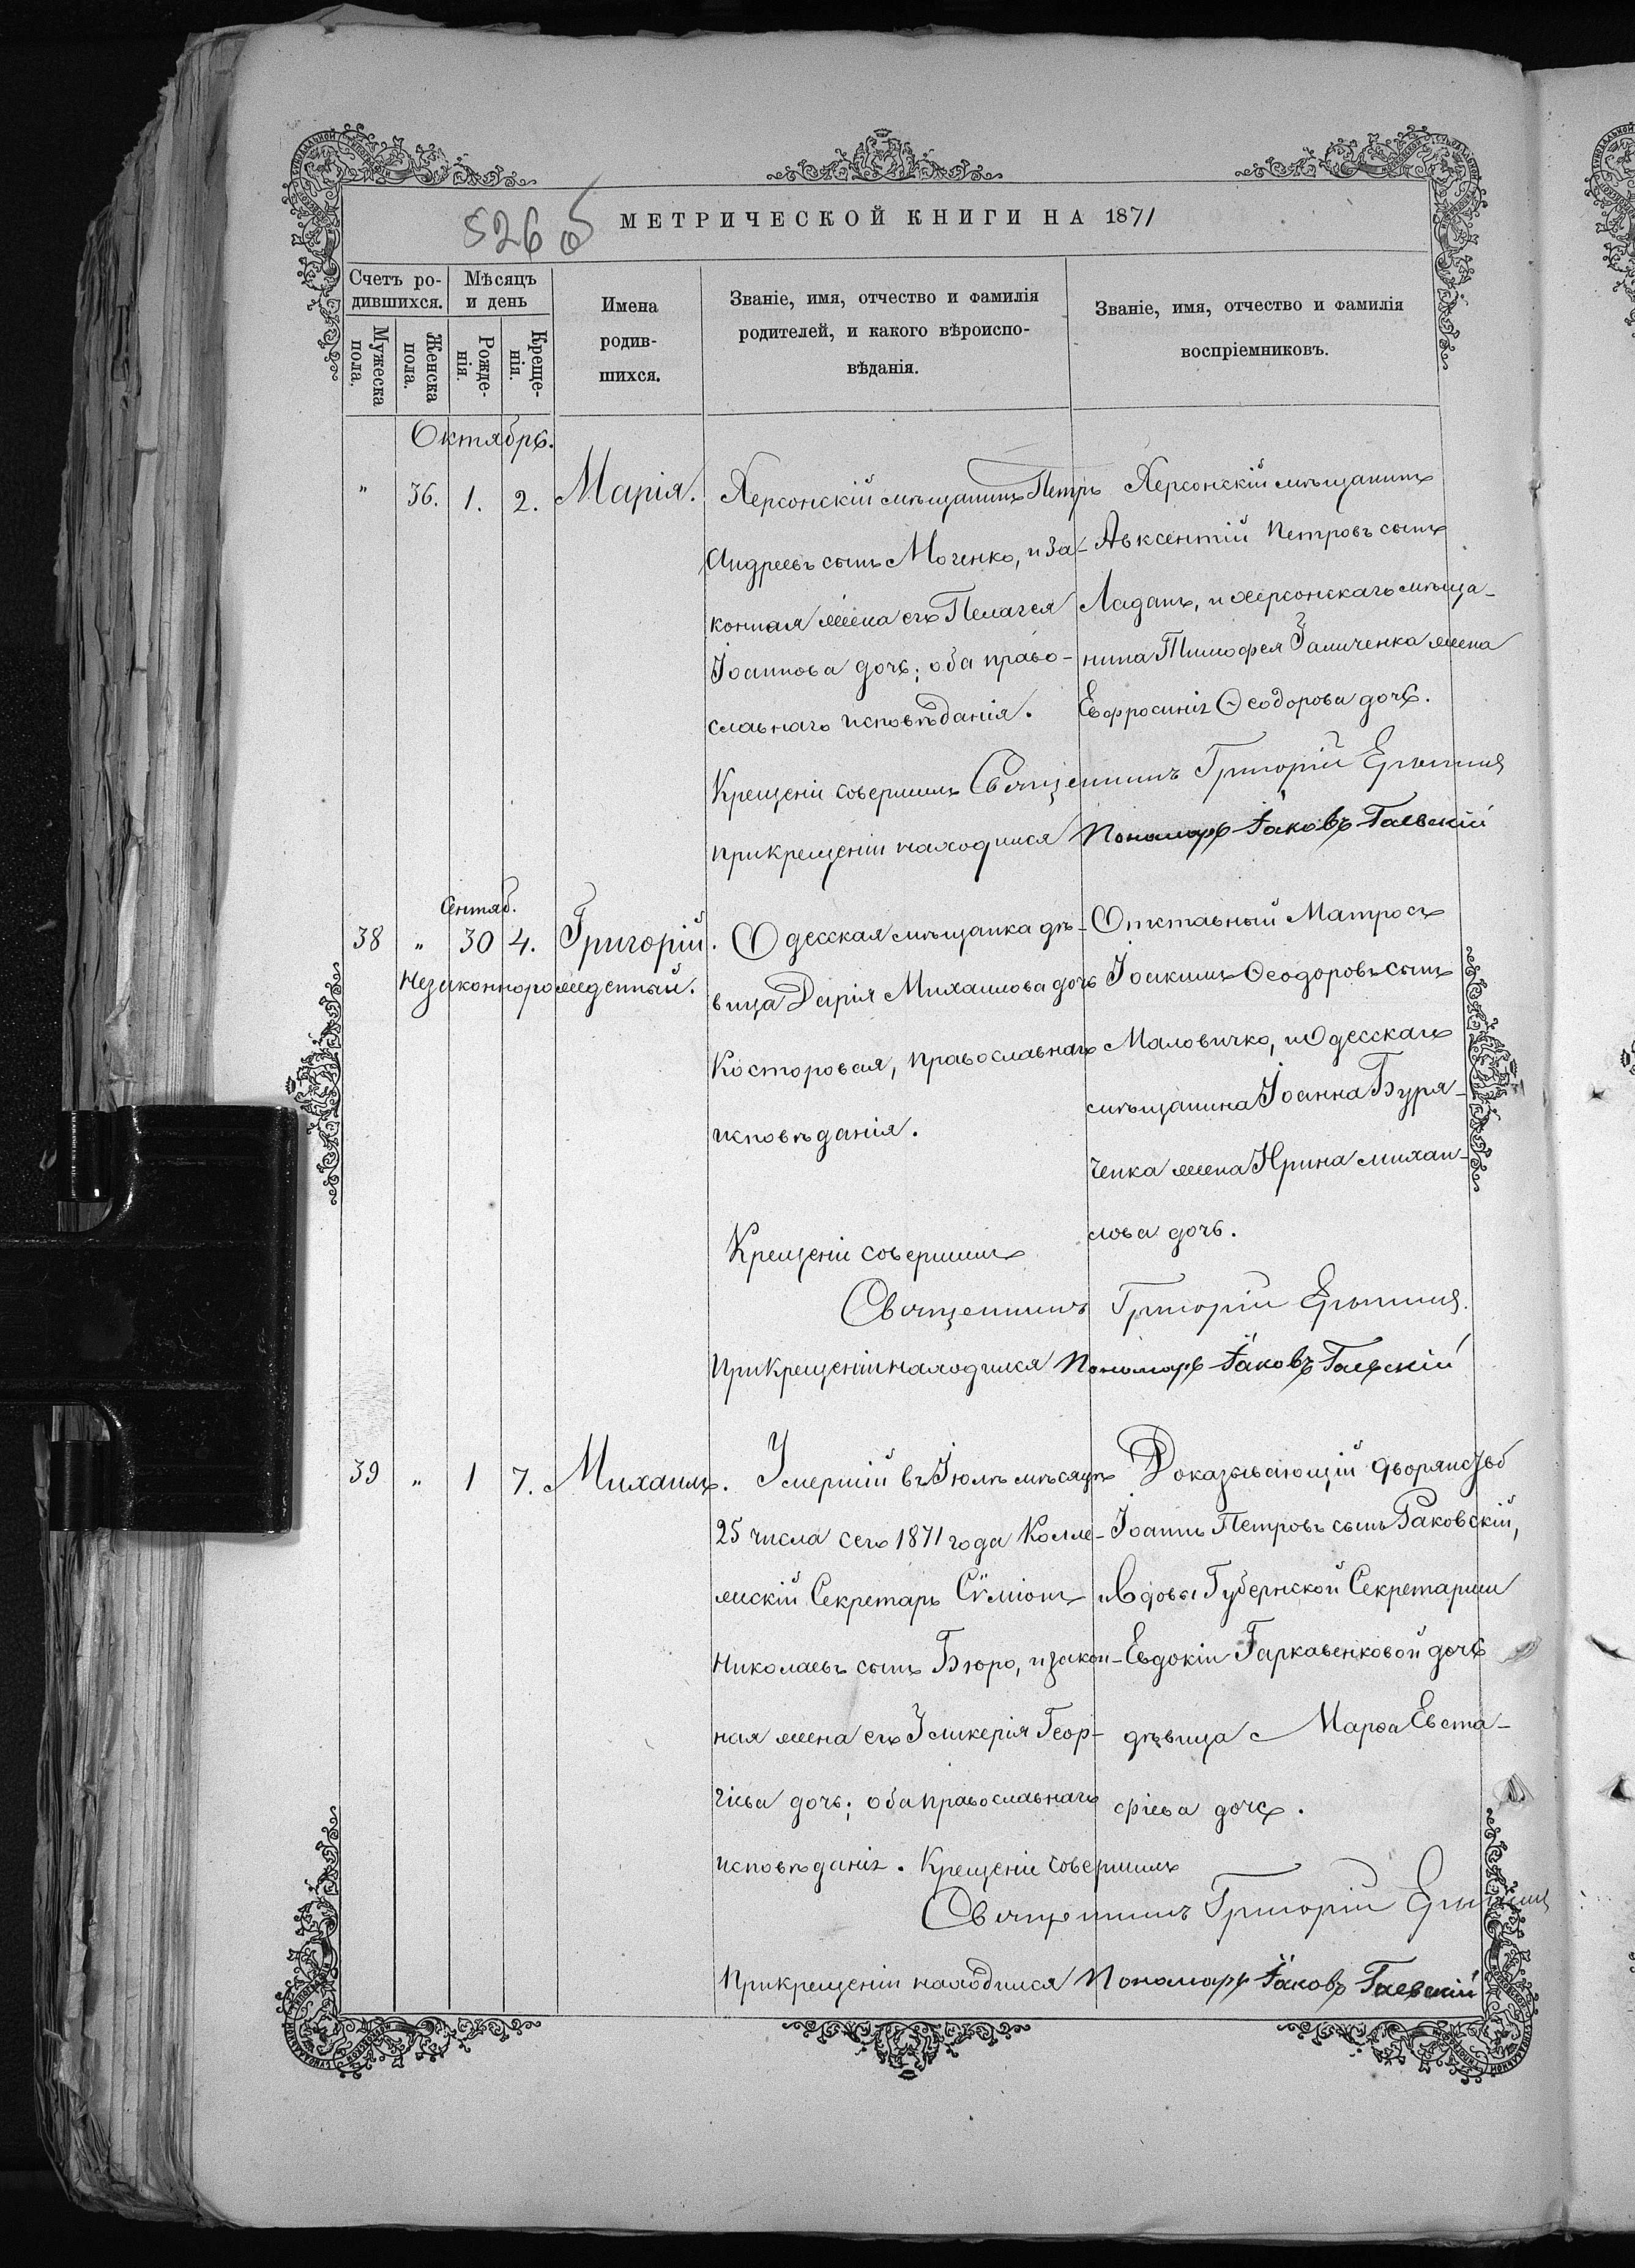 526 об
МЕТРИЧЕСКОЙ КНИГИ НА 1871
Счетъ ро-
дившихся.
Мѣсяцъ
и день
Мужеска
пола.
Женска
пола.
Рожде-
нія.
Креще-
нія.
Имена
родив-
шихся.
Званіе, имя, отчество и фамилія
родителей, и какого вѣроиспо-
вѣданія.
Званіе, имя, отчество и фамилія
воспріемниковъ.
Октябрь.
" 36. 1. 2. Марія.
Херсонскій мѣщанинъ Петръ
Андреевъ сынъ Моченко, и за-
конная жена его Пелагея
Іоаннова дочь; оба право-
славнаго исповѣданія.
Херсонскій мѣщанинъ
Авксентій Петровъ сынъ
Ладанъ, и херсонскаго мѣща-
нина Тимофея Заличенка жена
Евфросинія Ѳеодорова дочь.
Крещеніе совершилъ Священникъ Григорій
При крещеніи находился Пономарь Іаковъ Гаевскій
Сентяб.
38 " 30 4. Григорій.
Незаконнорожденный.
Одесская мѣщанка дѣ-
вица Дарія Михаилова дочь
Косторовая, православнаго
исповѣданія.
Отставный Матросъ
Іоакимъ Ѳеодоровъ сынъ
Маловичко, и Одесскаго
мѣщанина Іоанна Буря-
ченка жена Ирина Михаи-
лова дочь.
Крещеніе совершилъ
Священникъ Григорій
При крещеніи находился Пономарь Іаковъ Гаевскій
39 " 1 7. Михаилъ.
Умершій въ Іюлѣ мѣсяцѣ
25 числа сего 1871 года Колле-
жскій Секретарь Сѵмеонъ
Николаевъ сынъ Бюро, и закон-
ная жена его Гликерія Геор-
гіева дочь; оба православнаго
исповѣданія. Крещеніе совершилъ
Доказывающій дворянство
Іоаннъ Петровъ сынъ Раковскій,
и Вдовы Губернской Секретарши
Евдокіи Гаркавенковой дочь
дѣвица Марѳа Евста-
фіева дочь.
Священникъ Григорій
При крещеніи находился Пономарь Іаковъ Гаевскій